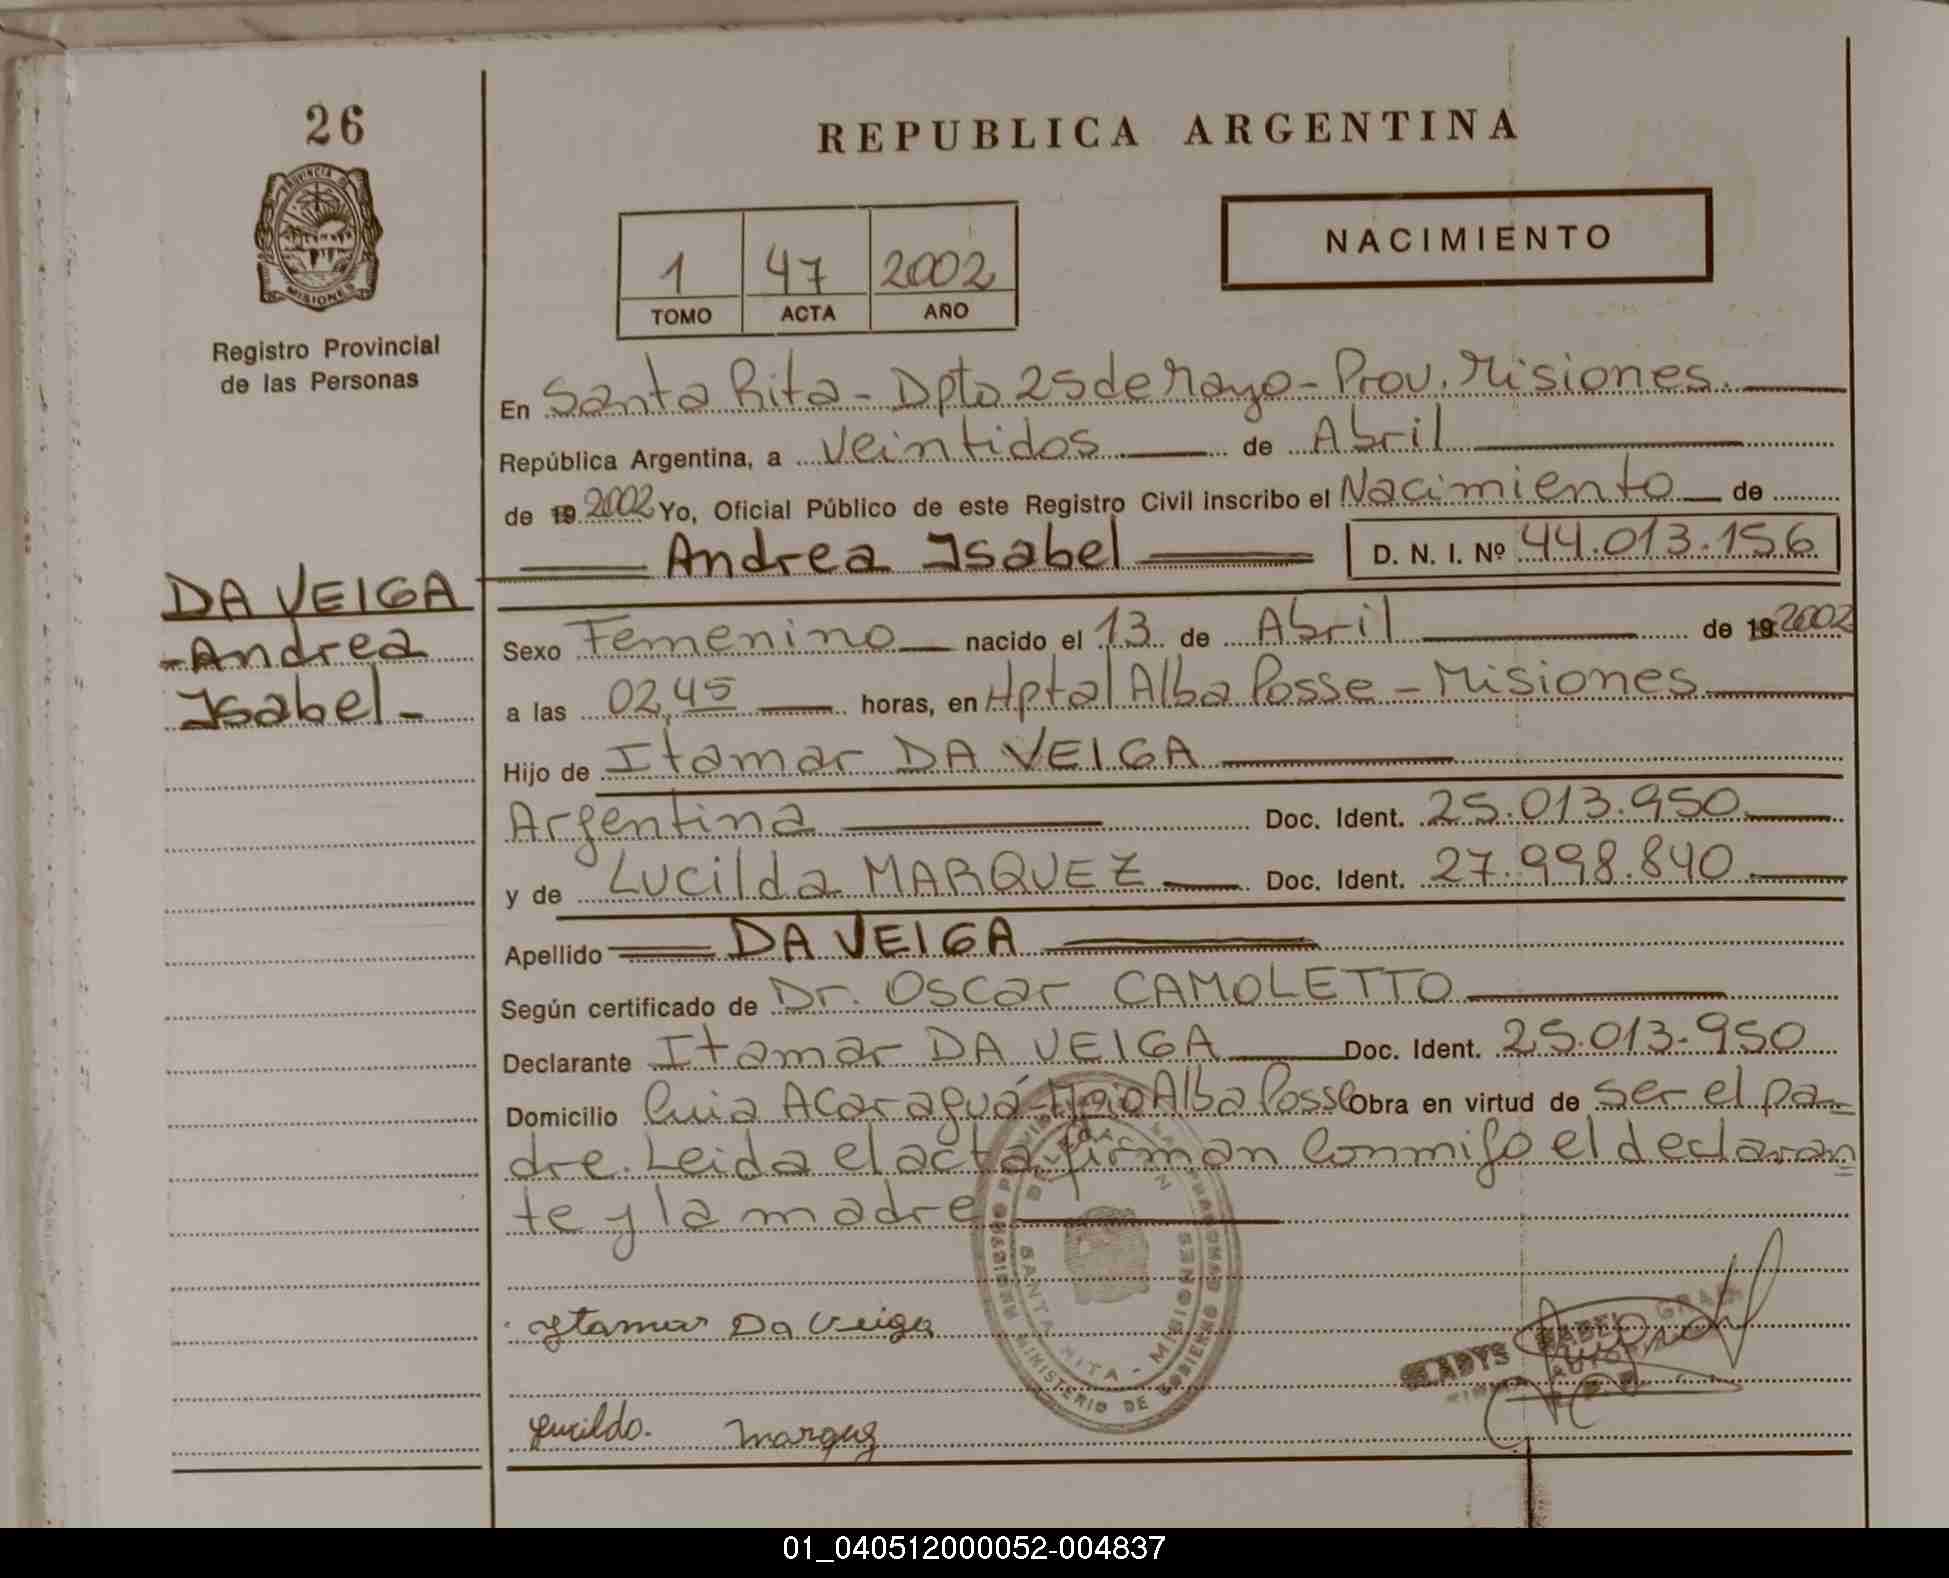 26
PROVINCIA DE
MISIONES
Registro Provincial
de las Personas
DA VEIGA
-Andrea
Isabel-
REPUBLICA ARGENTINA
NACIMIENTO
1 47 2002
TOMO ACTA AÑO
En Santa Rita - Dpto 25 de Mayo - Prov. Misiones.
República Argentina, a Veintidos de Abril
de 19 2002 Yo, Oficial Público de este Registro Civil inscribo el Nacimiento de
Andrea Isabel D. N. I. Nº 44.013.156
Sexo Femenino nacido el 13 de Abril de 19 2002
a las 02,45 horas, en Hptal Alba Posse - Misiones
Hijo de Itamar DA VEIGA
Argentina Doc. Ident. 25.013.950
y de Lucilda MARQUEZ Doc. Ident. 27.998.840
Apellido DA VEIGA
Según certificado de Dr. Oscar CAMOLETTO
Declarante Itamar DA VEIGA Doc. Ident. 25.013.950
Domicilio Acaraguá - Alba Posse Obra en virtud de ser el pa-
dre. Leida el acta, firman conmigo el declaran
te y la madre
Itamar Da Veiga
SANTA RITA - MISIONES
MINISTERIO DE GOBIERNO
GLADYS ISABEL
Lucilda. Marquez
01_040512000052-004837